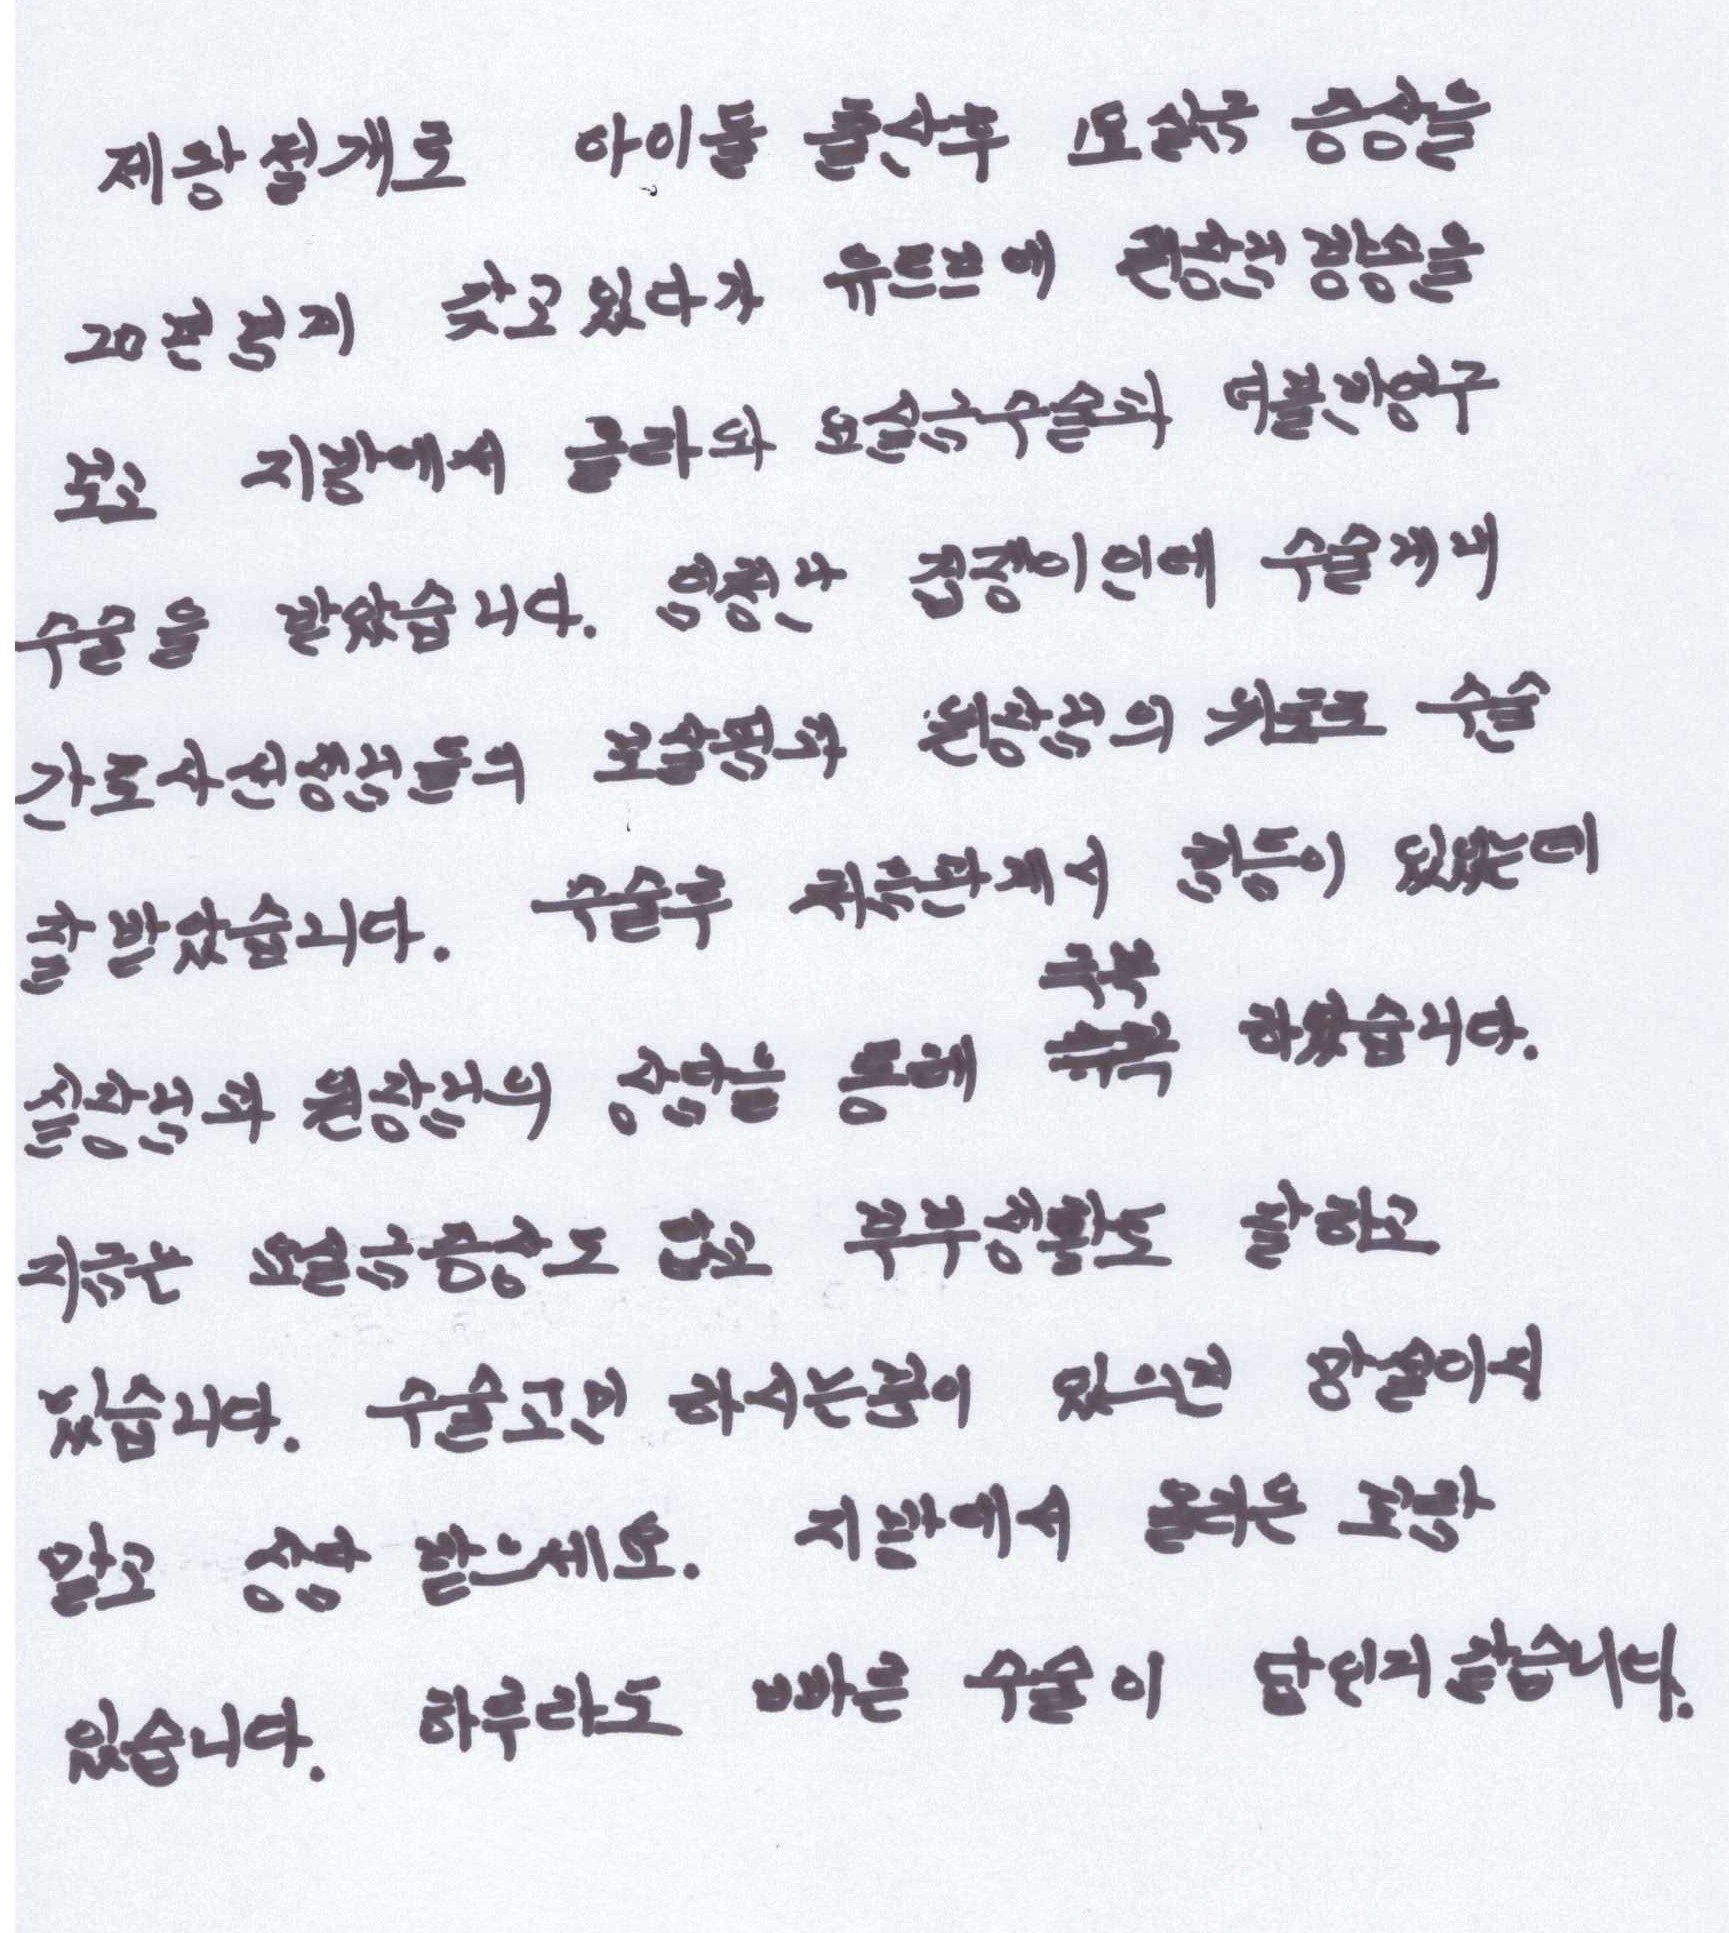 제왕절개로 아이둘 출산후 요실금 증상을
20년넘게 찾고있다가 유트브에 원장님 방송을
보고 지방에서 올라와 요실금수술과 더블반영구
수술을 받았습니다. 엄청난 겁쟁이인데 수술께내
간호사선생님들의 보살핌과 원장님의 위로로 수술
잘받았습니다. 수술후 부부관계시 힘듬이 있었는데
실장님과 원장님의 상담을 통해 극복 하였습니다.
지금은 요실금증상도 없고 부부생활도 잘하고
있습니다. 수술고민 하시는분이 있으면 망설이시
말고 상담 받으세요. 지방에서 올라온 보람
있습니다. 하루라도 빠른 수술이 답인거 같습니다.